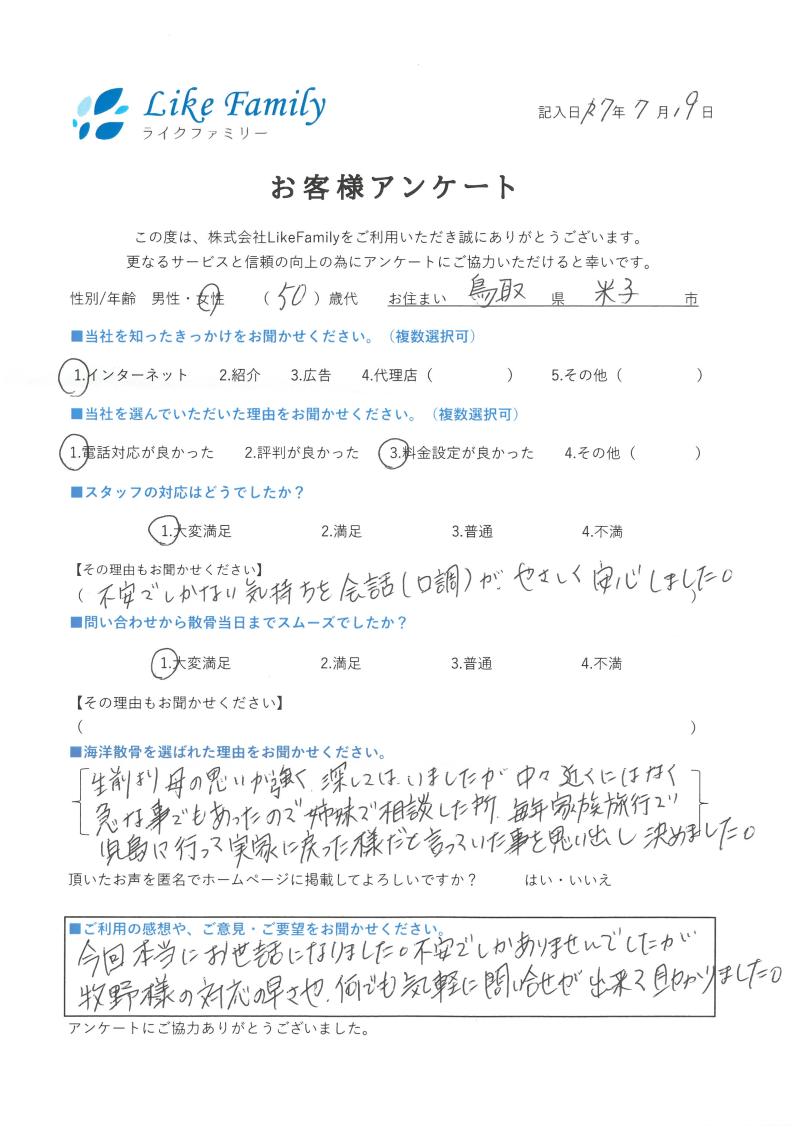 Like Family
ライクファミリー
記入日 R7年 7月19日
お客様アンケート
この度は、株式会社LikeFamilyをご利用いただき誠にありがとうございます。
更なるサービスと信頼の向上の為にアンケートにご協力いただけると幸いです。
性別/年齢 男性・女性 （ 50 ）歳代 お住まい 鳥取 県 米子 市
■当社を知ったきっかけをお聞かせください。（複数選択可）
1.インターネット 2.紹介 3.広告 4.代理店（ ） 5.その他（ ）
■当社を選んでいただいた理由をお聞かせください。（複数選択可）
1.電話対応が良かった 2.評判が良かった 3.料金設定が良かった 4.その他（ ）
■スタッフの対応はどうでしたか？
1.大変満足 2.満足 3.普通 4.不満
【その理由もお聞かせください】
（ 不安でしかない気持ちを会話(口調)が、やさしく安心しました。 ）
■問い合わせから散骨当日までスムーズでしたか？
1.大変満足 2.満足 3.普通 4.不満
【その理由もお聞かせください】
（ ）
■海洋散骨を選ばれた理由をお聞かせください。
生前より母の思いが強く、探してはいましたが中々近くにはなく
急な事でもあったので姉妹で相談した所、毎年家族旅行で
児島に行って実家に戻った様だと言っていた事を思い出し決めました。
頂いたお声を匿名でホームページに掲載してよろしいですか？ はい・いいえ
■ご利用の感想や、ご意見・ご要望をお聞かせください。
今回本当にお世話になりました。不安でしかありませんでしたが
牧野様の対応の早さや、何でも気軽に問い合せが出来て助かりました。
アンケートにご協力ありがとうございました。